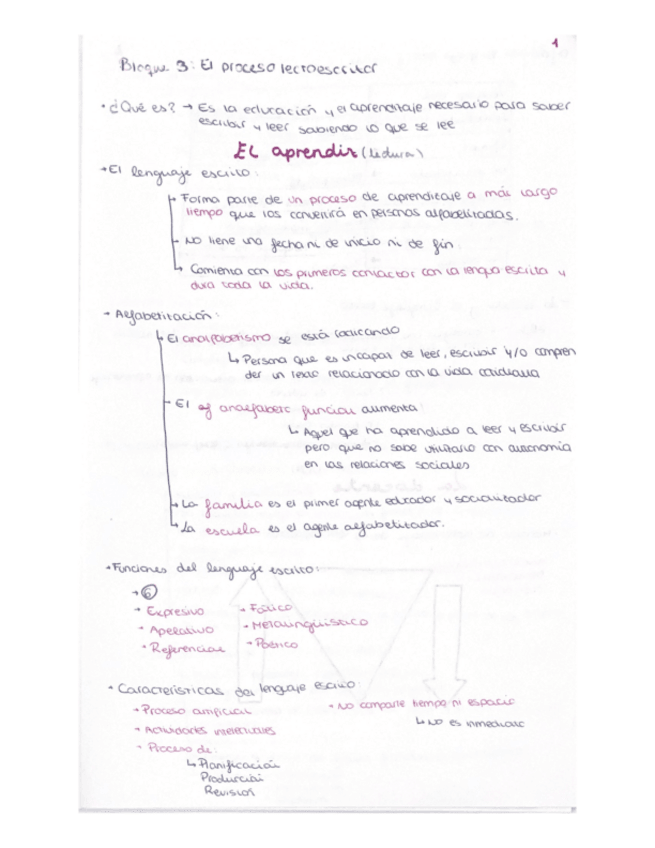 1
Bloque 3: El proceso lectoescritor
• ¿Qué es? → Es la educación y el aprendizaje necesario para saber
escribir y leer sabiendo lo que se lee
EL aprendiz (lectura)
→ El lenguaje escrito:
→ Forma parte de un proceso de aprendizaje a más largo
tiempo que los convertirá en personas alfabetizadas.
→ NO tiene una fecha ni de inicio ni de fin
→ Comienza con los primeros contactos con la lengua escrita y
dura toda la vida.
→ Alfabetización:
→ El analfabetismo se está radicando
↳ Persona que es incapaz de leer, escribir y/o compren
der un texto relacionado con la vida cotidiana
→ El analfabeto funcional aumenta:
↳ Aquel que ha aprendido a leer y escribir
pero que no sabe utilizarlo con autonomía
en las relaciones sociales
→ La familia es el primer agente educador y socializador
→ La escuela es el agente alfabetizador.
• Funciones del lenguaje escrito:
→ 6
→ Expresivo → Fático
→ Apelativo → Metalingüístico
→ Referencial → Poético
• Características del lenguaje escrito:
→ Proceso artificial → No comparte tiempo ni espacio
→ Actividades intelectuales ↳ NO es inmediato
→ Proceso de:
↳ Planificación
Producción
Revisión